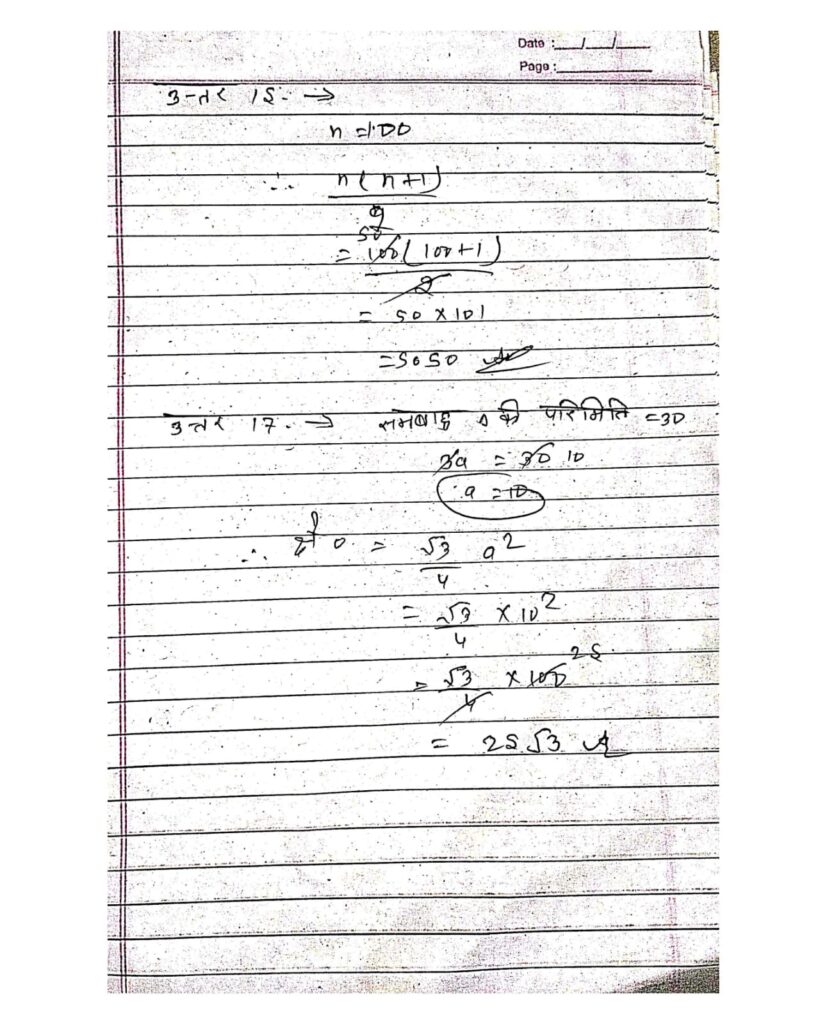 Date :__/__/__
Page :______
उत्तर 15. →
n = 100
∴ n(n+1)
2
50
= 100(100+1)
2
= 50 × 101
= 5050 Ans
उत्तर 17. → समबाहु Δ की परिमिति = 30
3a = 30 10
a = 10
∴ क्षे० = √3 a²
4
= √3 × 10²
4
25
= √3 × 100
4
= 25√3 Ans